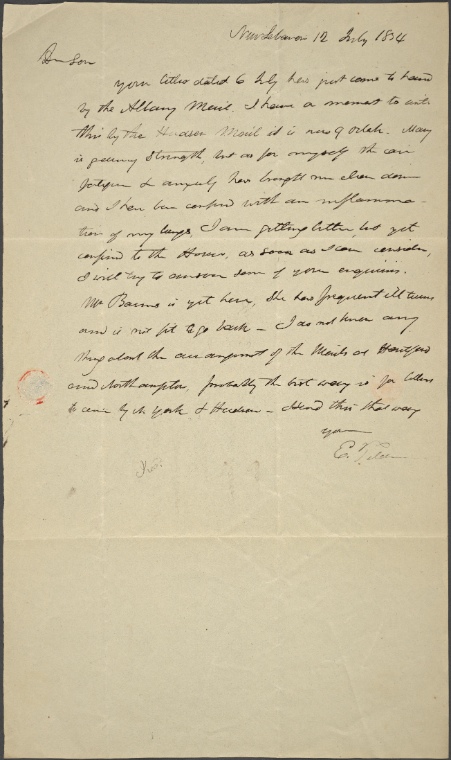 New Lebanon 12 July 1834
Dear Son
your letter dated 6 July has just come to hand
by the Albany Mail. I have a moment to write
this by the Hudson Mail it is now 9 oclok. Mary
is gaining strength, but as for myself the care
fatigue & anxiety has brought me clean down
and I have been confind with an inflamma-
tion of my lungs, I am getting better, but yet
confind to the House, as soon as I can consider,
I will try to answer some of your enquiries.
Mrs Barns is yet here, She has frequent ill turns
and is not fit to go back – I do not know any
thing about the arrangement of the Mails at Hartford
and Northampton, probably the best way is for letters
to come by N York & Hudson – I send this that way
your
E. Tilden